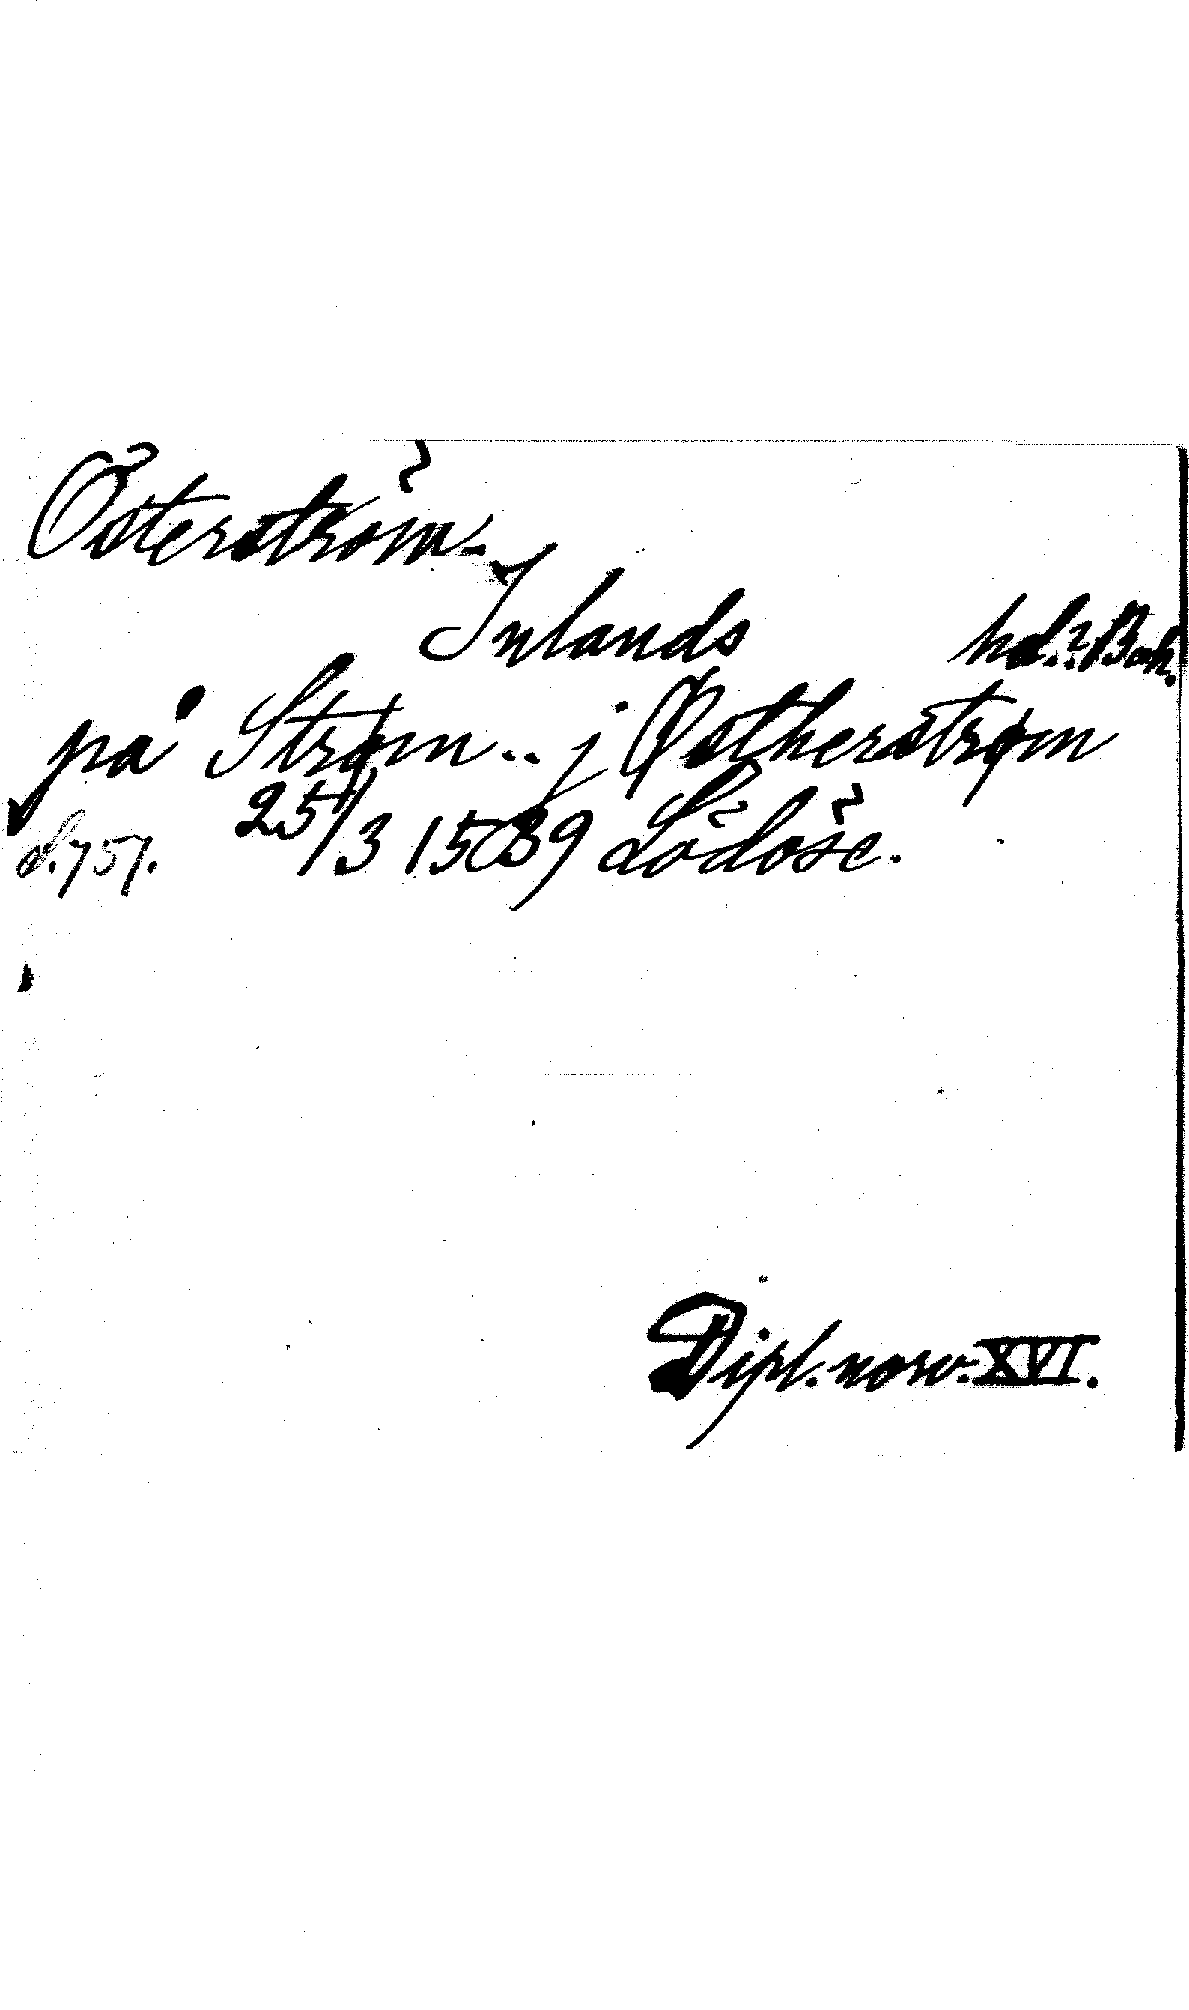 Österström.
Inlands hd.? Boh.
på Strøm .. j Østherstrøm
25/3 1539 Lödöse.
s. 757.
Dipl. norv. XVI.